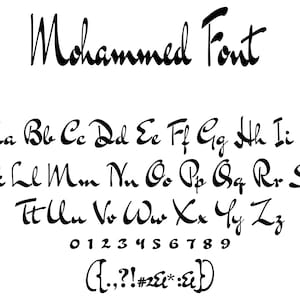 Mohammed Font
a Bb Cc Dd Ee Ff Gg Hh Ii
k Ll Mm Nn Oo Pp Qq Rr S
Tt Uu Vv Ww Xx Yy Zz
0 1 2 3 4 5 6 7 8 9
({.,?!#